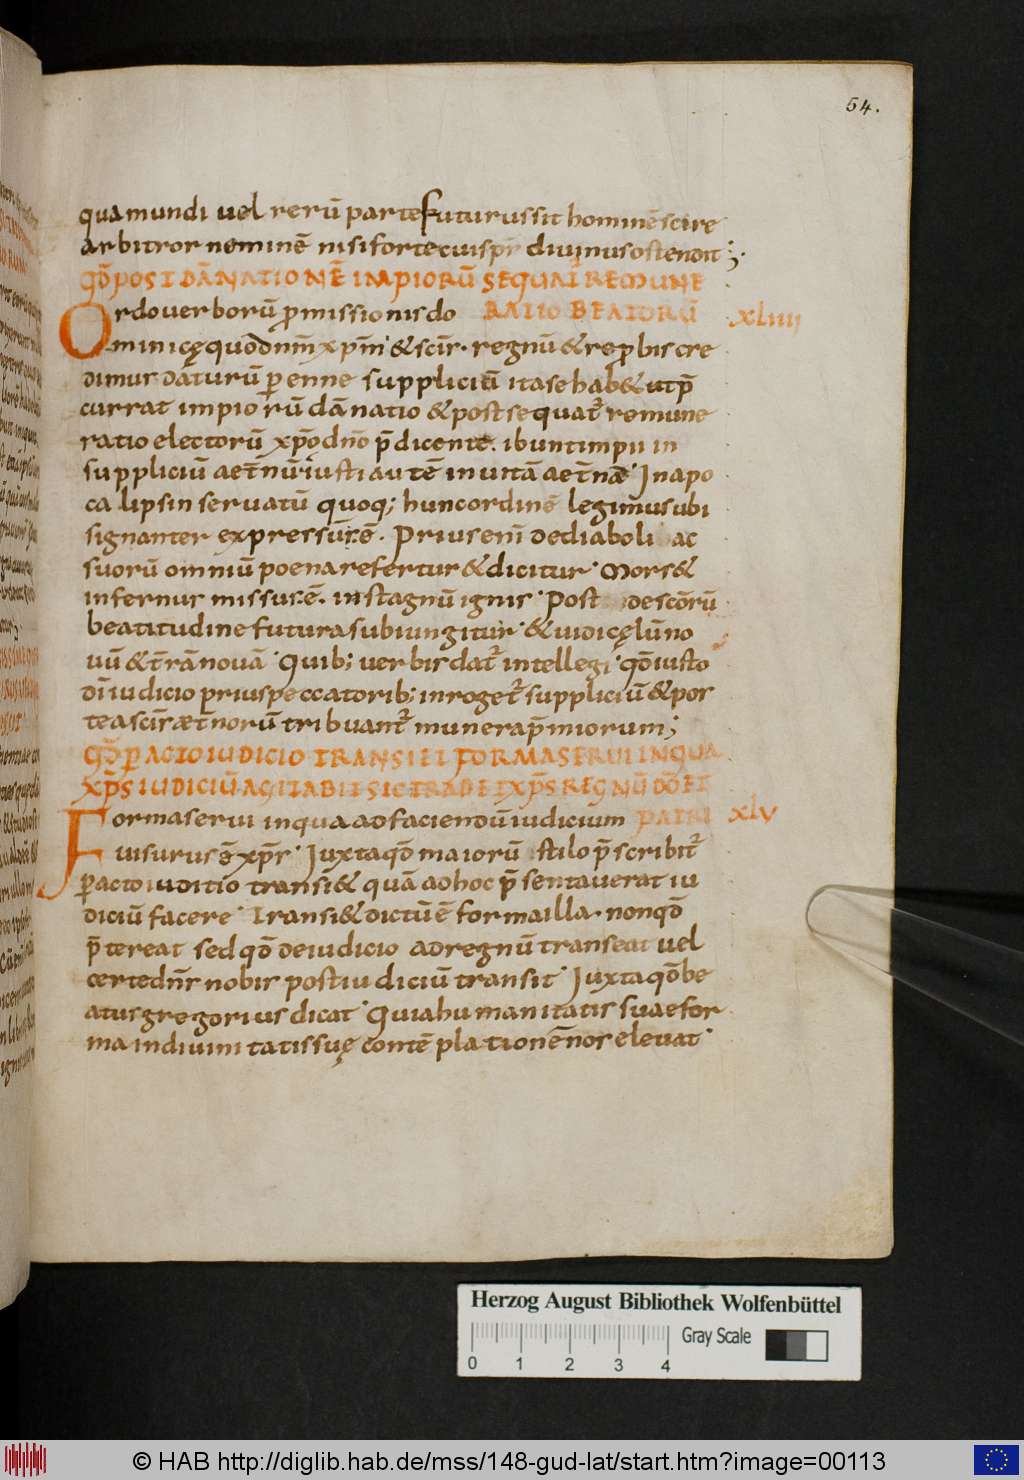 54.
qua mundi uel rerū parte futurus sit hominē scire
arbitror neminē nisi forte cui sp̄r diuinus ostendit;
qđ post dānationē impiorū sequat̄ remune
ratio beatorū xliiii
Ordo uerborū ꝓmissionis do
minicę quo dn̄m xp̄m & sc̄is regnū & reꝓbis cre
dimus daturū ꝑenne suppliciū ita se hab& ut p̄
currat impiorū dānatio & post sequat̄ remune
ratio electorū xp̄o dn̄o p̄dicente. ibunt impii in
suppliciū aet̄nū iusti autē in uitā aet̄nā In apo
calipsin seruatū quoq; hunc ordinē legimus ubi
signanter expressūs ē. Prius enī de diaboli ac
suorū omniū poena refertur & dicitur Mors &
infernus missus ē. in stagnū ignis Post de sc̄orū
beatitudine futura subiungitur & uidi cęlū no
uū & t̄rā nouā Quib; uerbis dat̄ intellegi qđ iusto
dī iudicio prius peccatorib; inroget̄ suppliciū & pos
tea sc̄is æt̄norū tribuant̄ munera p̄miorum;
qđ ꝑacto iudicio transiet forma serui in qua
xp̄s iudiciū agitabit sic tradet xp̄s regnū dō et
patri xlv
Forma serui in qua ad faciendū iudicium
uisurus ē xp̄s Iuxta qđ maiorū stilo p̄scribit̄
ꝑacto iuditio transi& quā ad hoc p̄sentauerat iu
diciū facere Transi& dictū ē forma illa. non qđ
p̄tereat sed qđ de iudicio ad regnū transeat uel
certe dn̄s nobis post iudiciū transit Iuxta qđ be
atus gregorius dicat Quia humanitatis suae for
ma in diuinitatis suę contēplationē nos eleuat
Herzog August Bibliothek Wolfenbüttel
Gray Scale
0 1 2 3 4
© HAB http://diglib.hab.de/mss/148-gud-lat/start.htm?image=00113